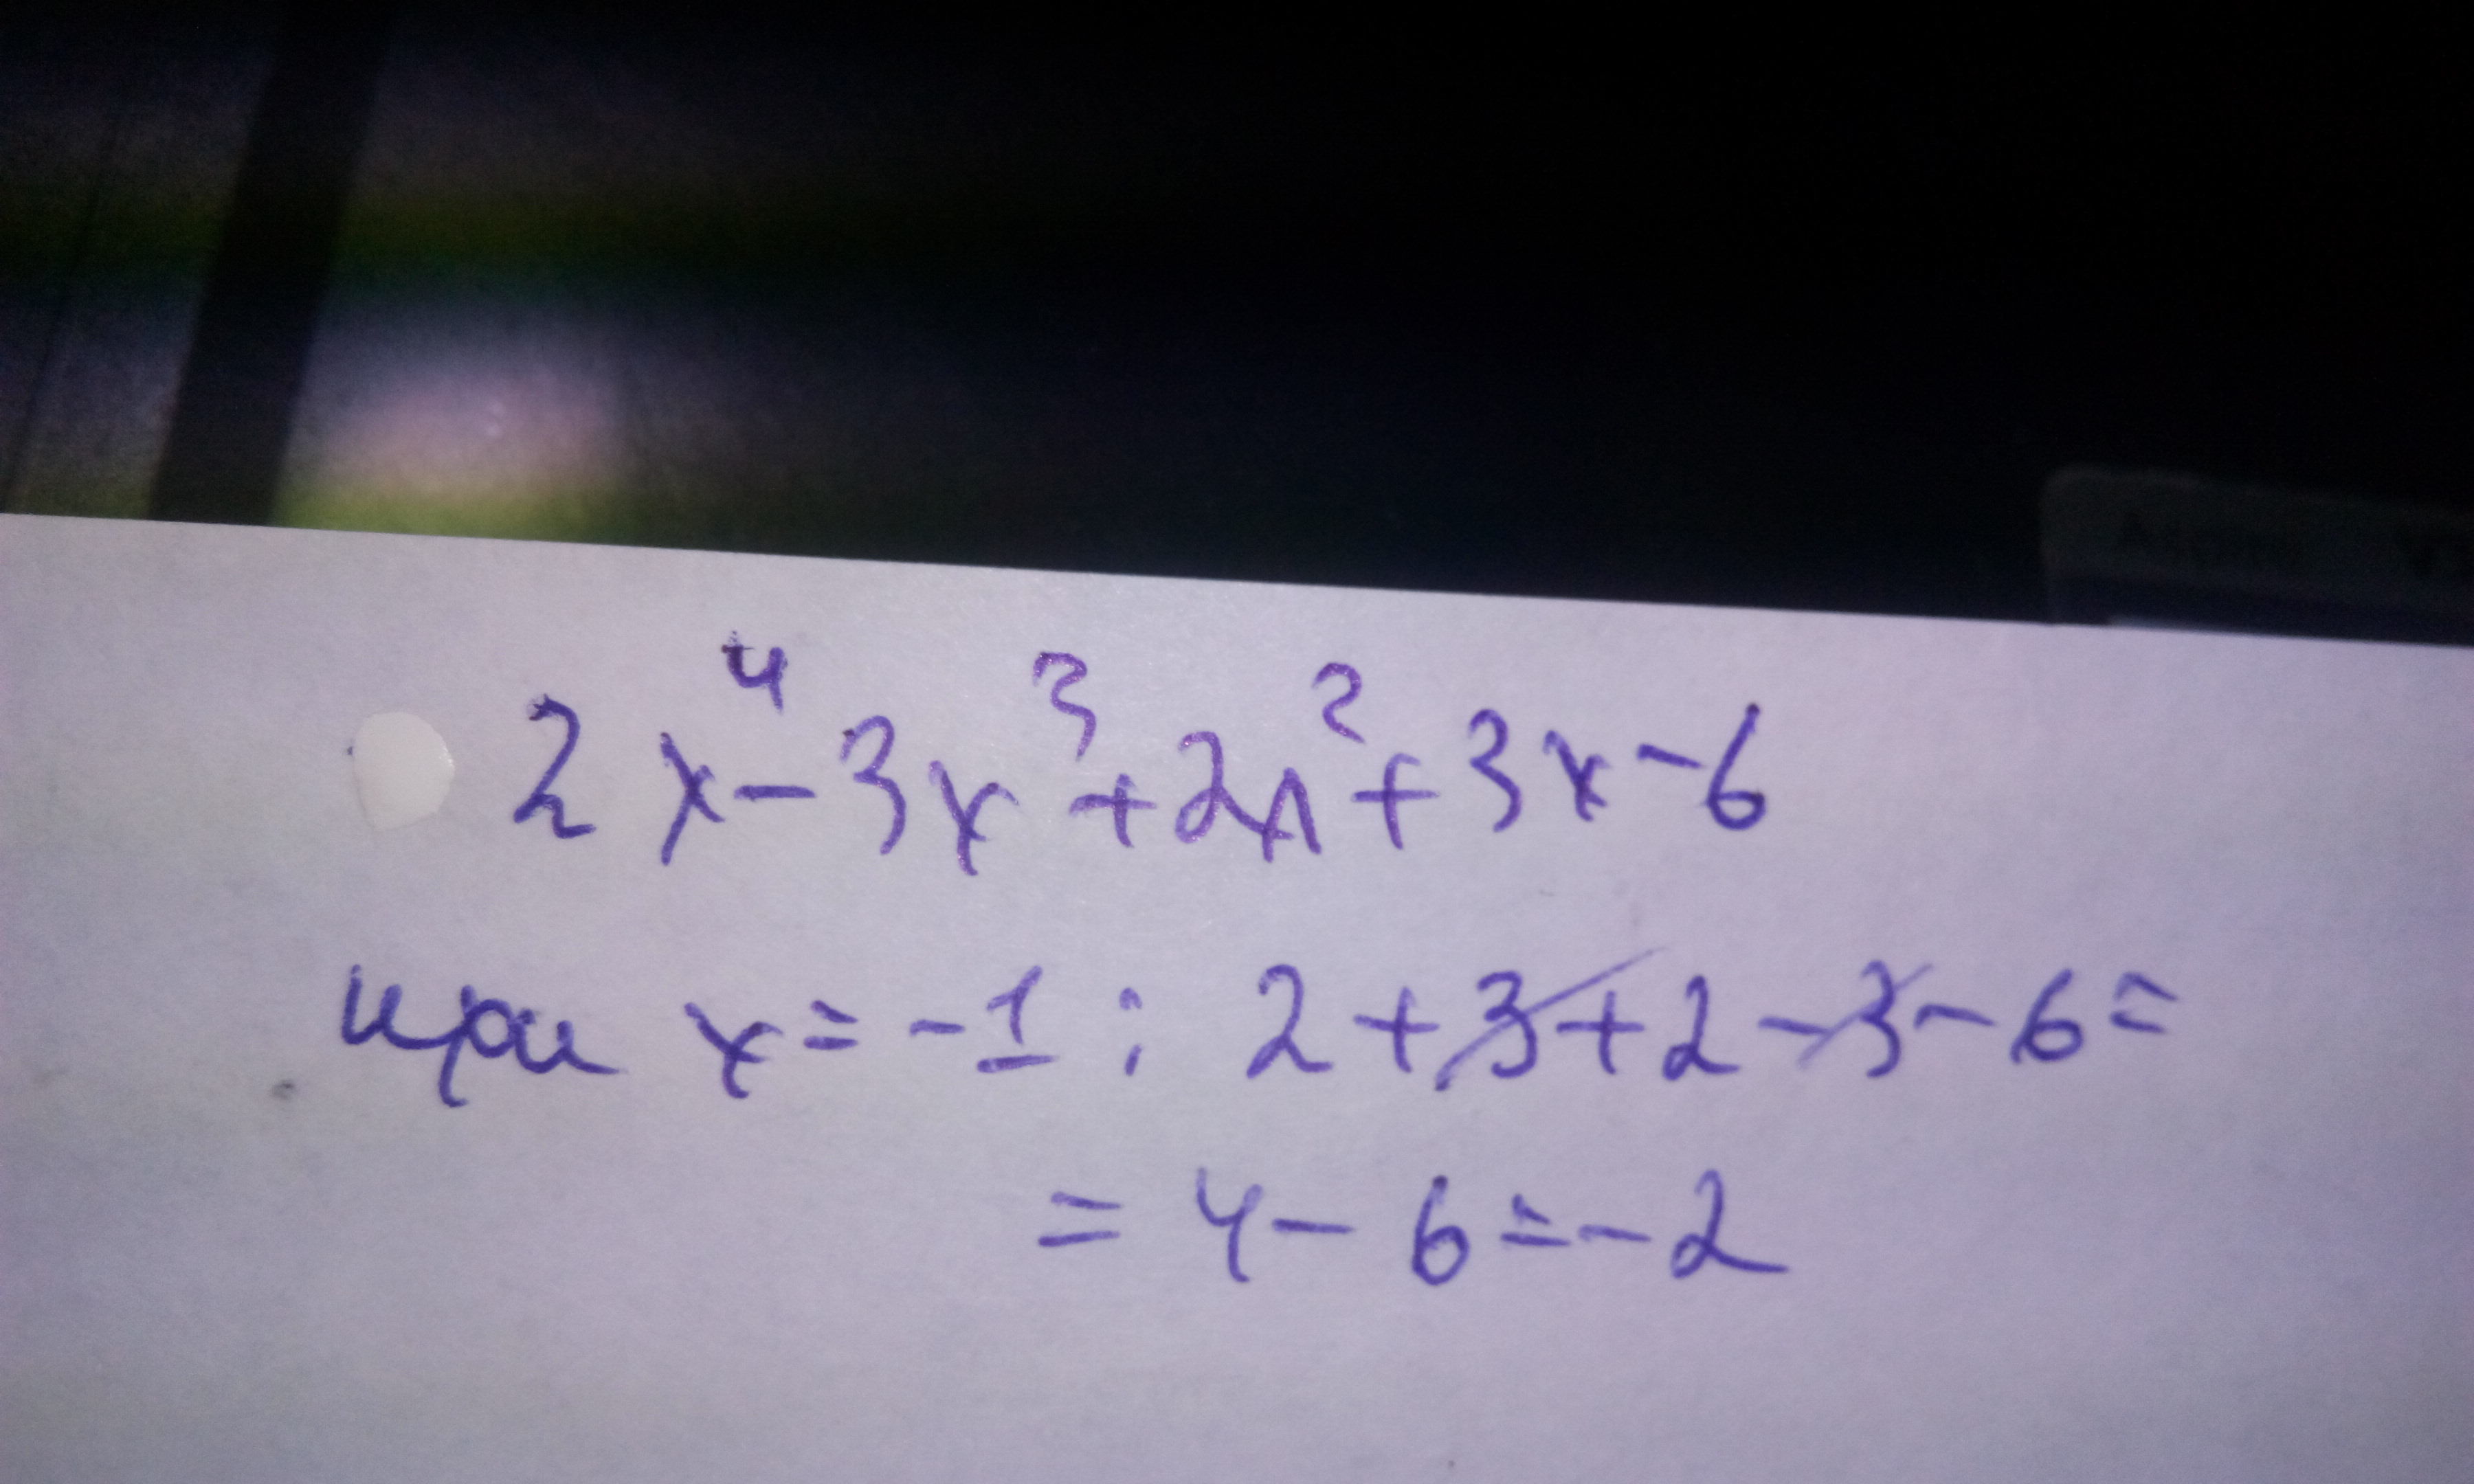 2x⁴-3x³+2x²+3x-6
при x=-1: 2+3+2-3-6=
=4-6=-2